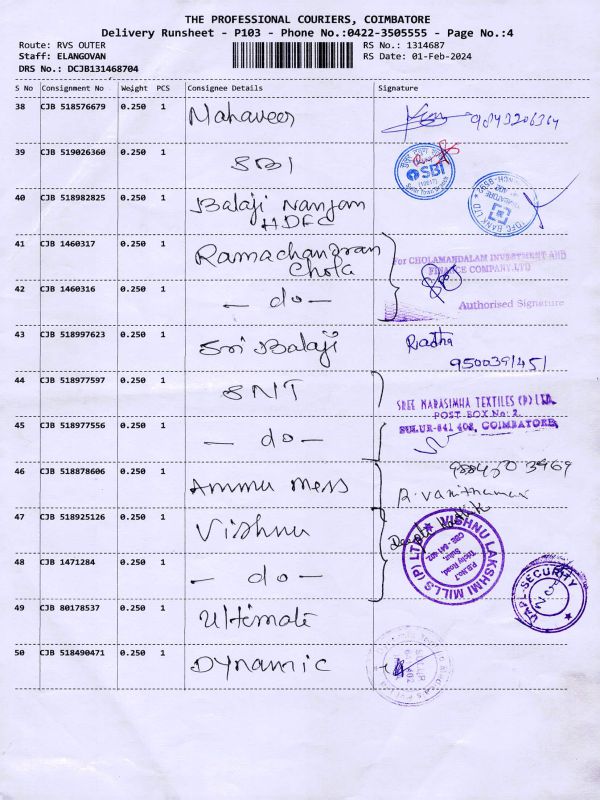 THE PROFESSIONAL COURIERS, COIMBATORE
Delivery Runsheet - P103 - Phone No.:0422-3505555 - Page No.:4
Route: RVS OUTER
RS No.: 1314687
Staff: ELANGOVAN
RS Date: 01-Feb-2024
DRS No.: DCJB131468704
S No Consignment No Weight PCS Consignee Details Signature
38 CJB 518576679 0.250 1 Mahaveer 9843206364
39 CJB 519026360 0.250 1 SBI
SBI
40 CJB 518982825 0.250 1 Balaji Nanjan
HDFC
HDFC BANK LTD
41 CJB 1460317 0.250 1 Ramachandran
Chola
For CHOLAMANDALAM INVESTMENT AND
FINANCE COMPANY LTD
42 CJB 1460316 0.250 1 - do -
Authorised Signature
43 CJB 518997623 0.250 1 Sri Balaji Radha
9500391451
44 CJB 518977597 0.250 1 SNT
SREE NARASIMHA TEXTILES (P) LTD.
POST BOX No: 2.
SULUR-641 402, COIMBATORE.
45 CJB 518977556 0.250 1 - do -
46 CJB 518878606 0.250 1 Ammu mess
47 CJB 518925126 0.250 1 Vishnu
VISHNU LAKSHMI MILLS (P) LTD
48 CJB 1471284 0.250 1 - do -
UAPL-SECURITY
49 CJB 80178537 0.250 1 Ultimate
50 CJB 518490471 0.250 1 Dynamic